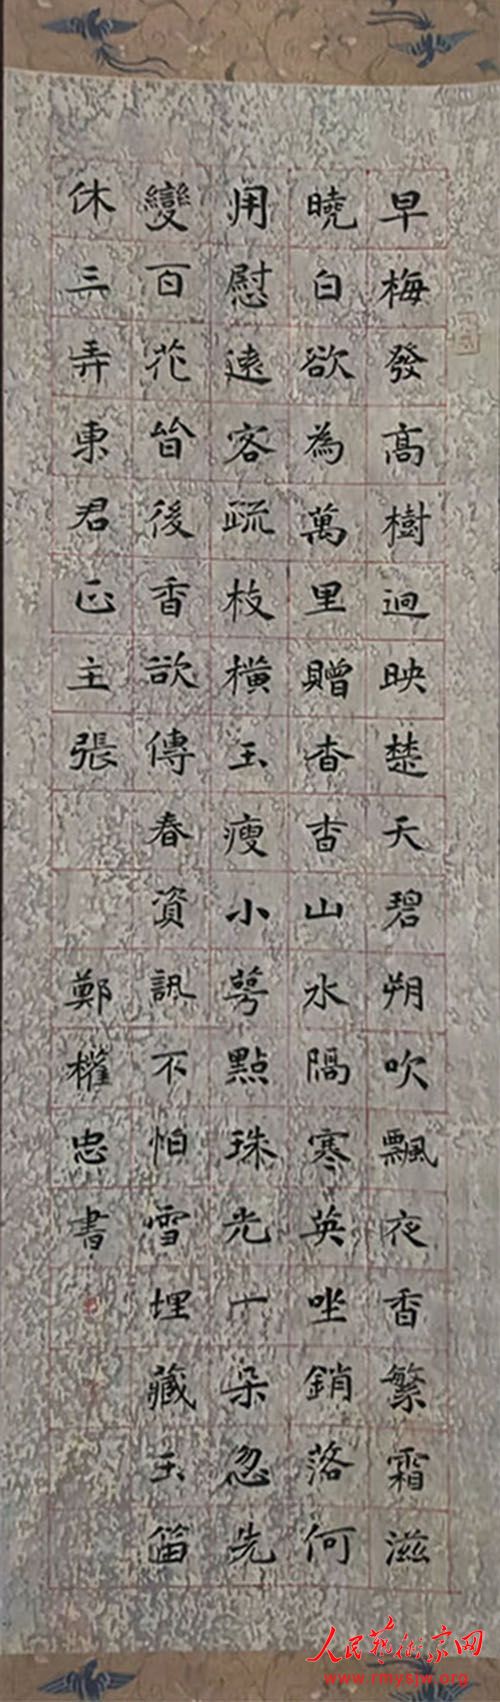 早梅發高樹迥映楚天碧朔吹飄夜香繁霜滋
曉白欲為萬里贈杳杳山水隔寒英坐銷落何
用慰遠客疏枝橫玉瘦小萼點珠光一朵忽先
變百花皆後香欲傳春資訊不怕雪埋藏玉笛
休三弄東君正主張 鄭權忠書
人民藝術家网
www.rmysjw.org